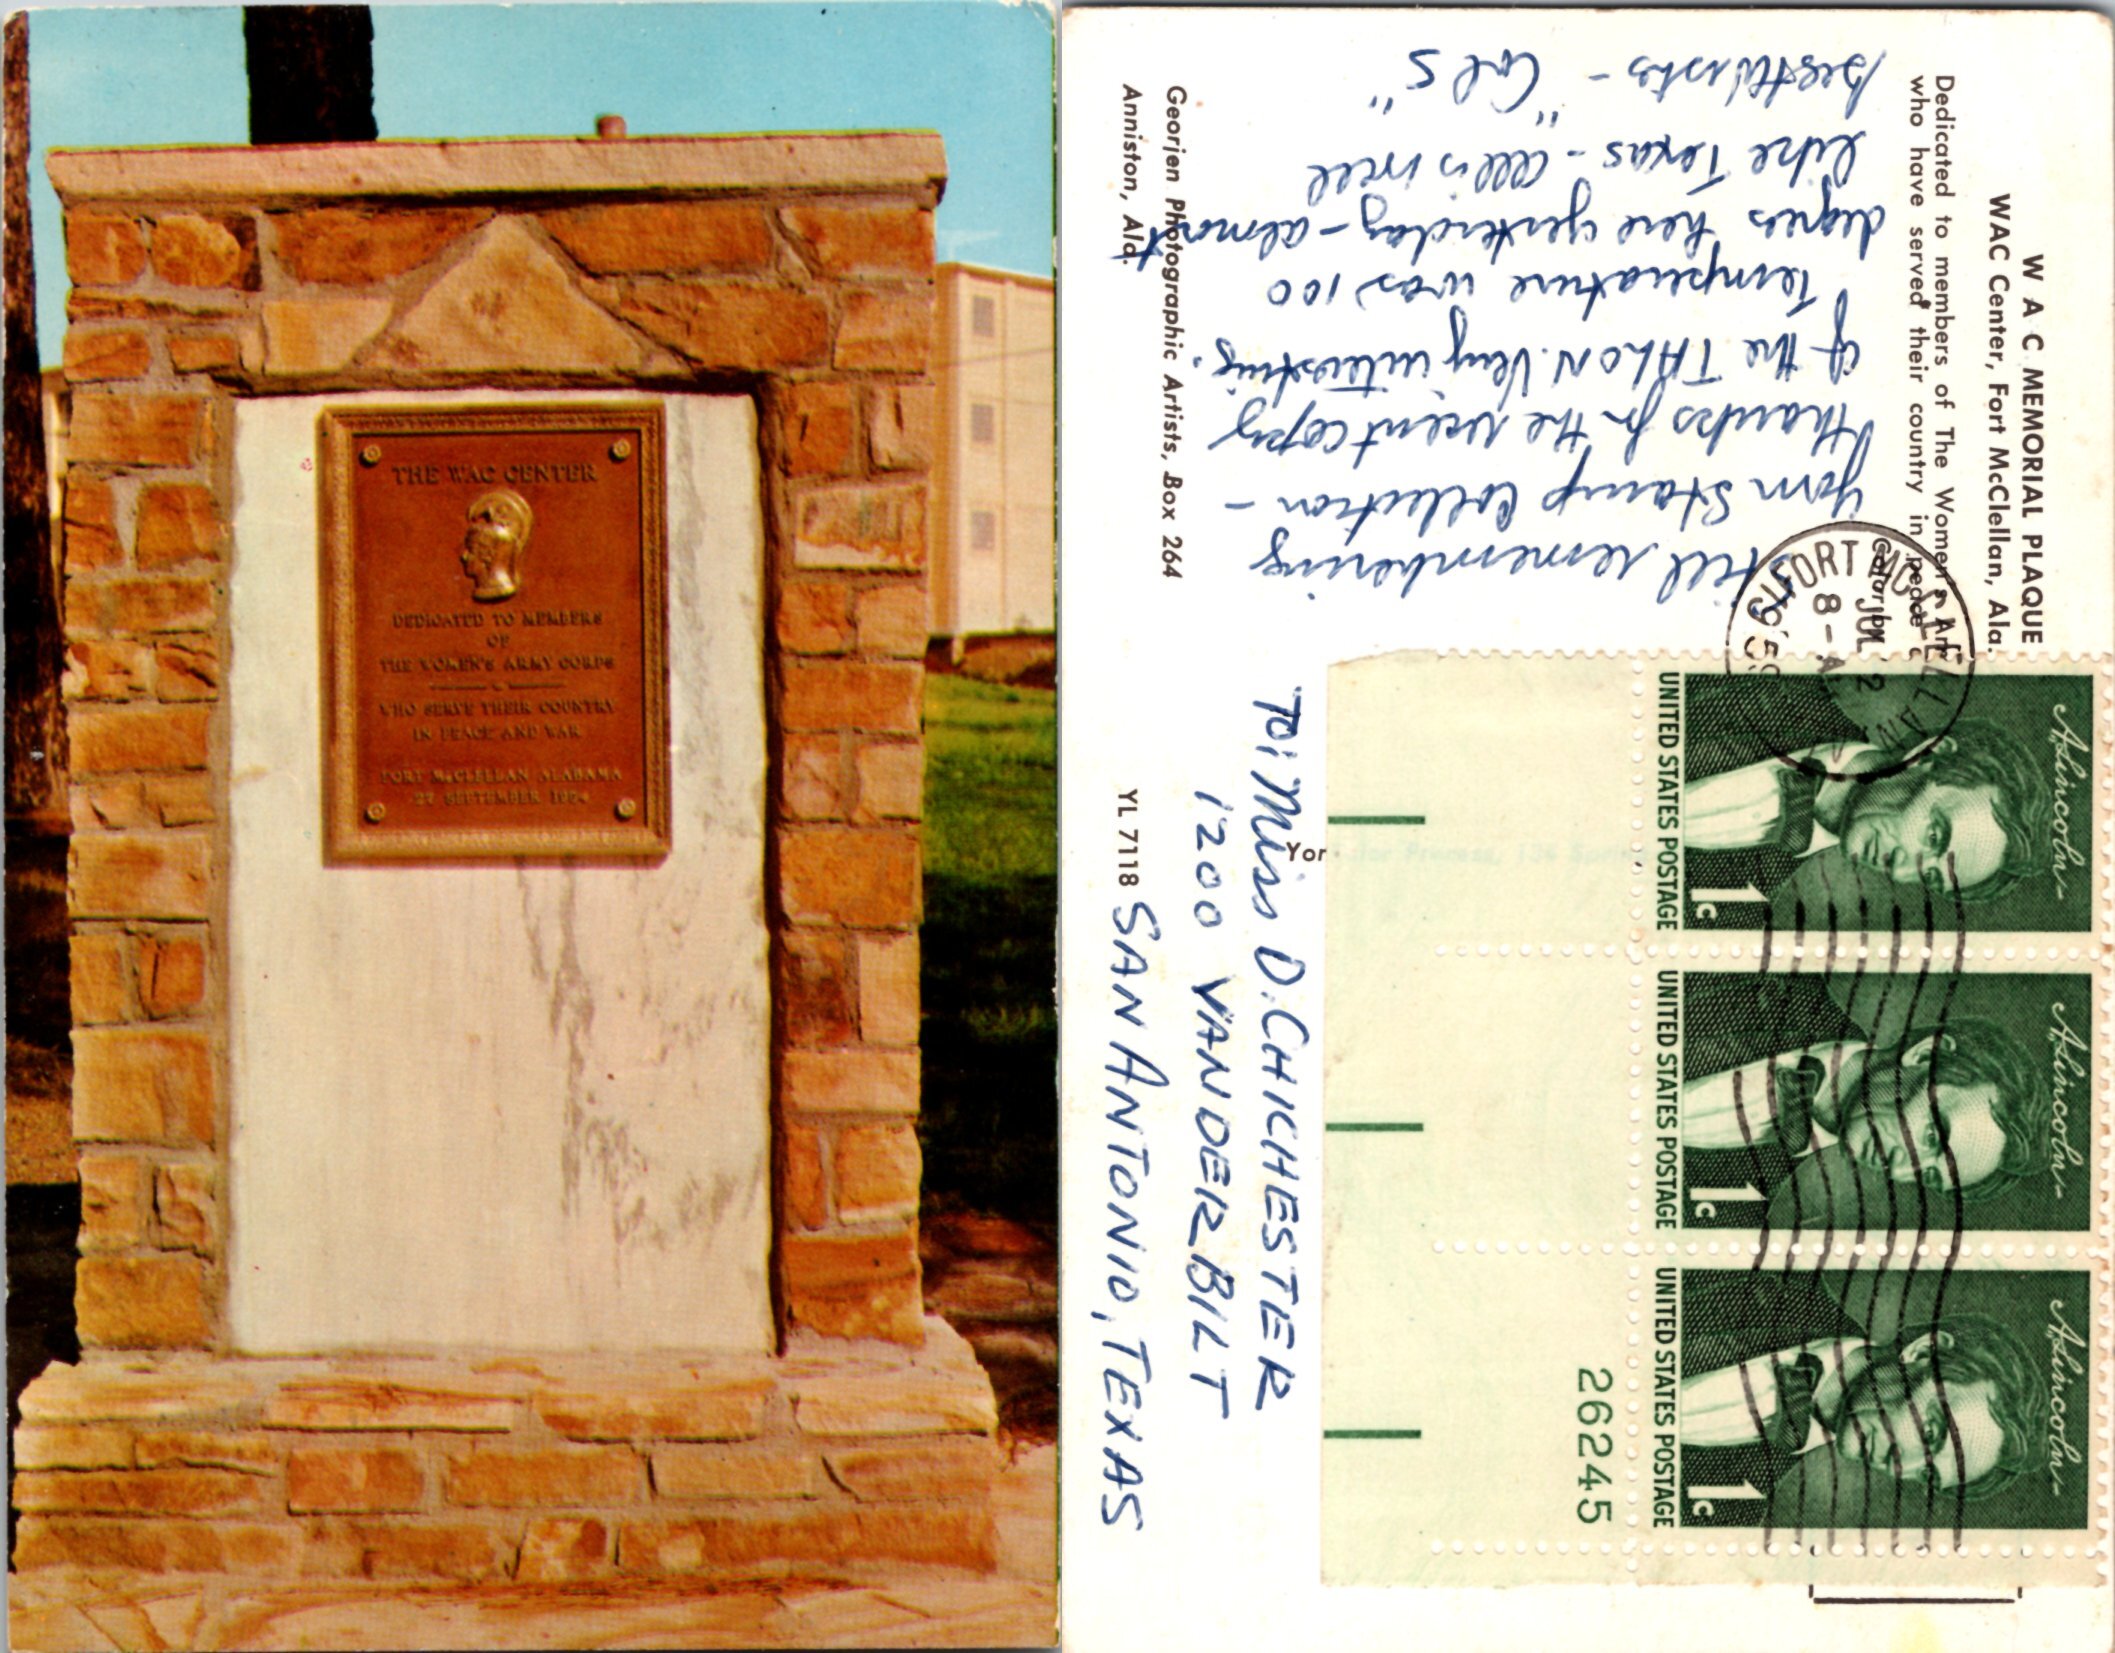 THE WAC CENTER
DEDICATED TO MEMBERS
OF
THE WOMEN'S ARMY CORPS
WHO SERVE THEIR COUNTRY
IN PEACE AND WAR
FORT McCLELLAN ALABAMA
27 SEPTEMBER 1954
W A C MEMORIAL PLAQUE
WAC Center, Fort McClellan, Ala.
Dedicated to members of The Women's Arm
who have served their country in peace
Color by
Still remembering
your Stamp Collection -
thanks for the recent copy
of the TALON. Very interesting.
Temperature was 100
degres here yesterday - almost
like Texas - all is well
Best Wishes - "Col S"
Georjen Photographic Artists, Box 264
Anniston, Ala.
FORT McCLELLAN
JUL 2
8 - A
1959
A. Lincoln
UNITED STATES POSTAGE
1c
A. Lincoln
UNITED STATES POSTAGE
1c
A. Lincoln
UNITED STATES POSTAGE
1c
26245
Yor
TO: Miss D. CHICHESTER
1200 VANDERBILT
SAN ANTONIO, TEXAS
YL 7118